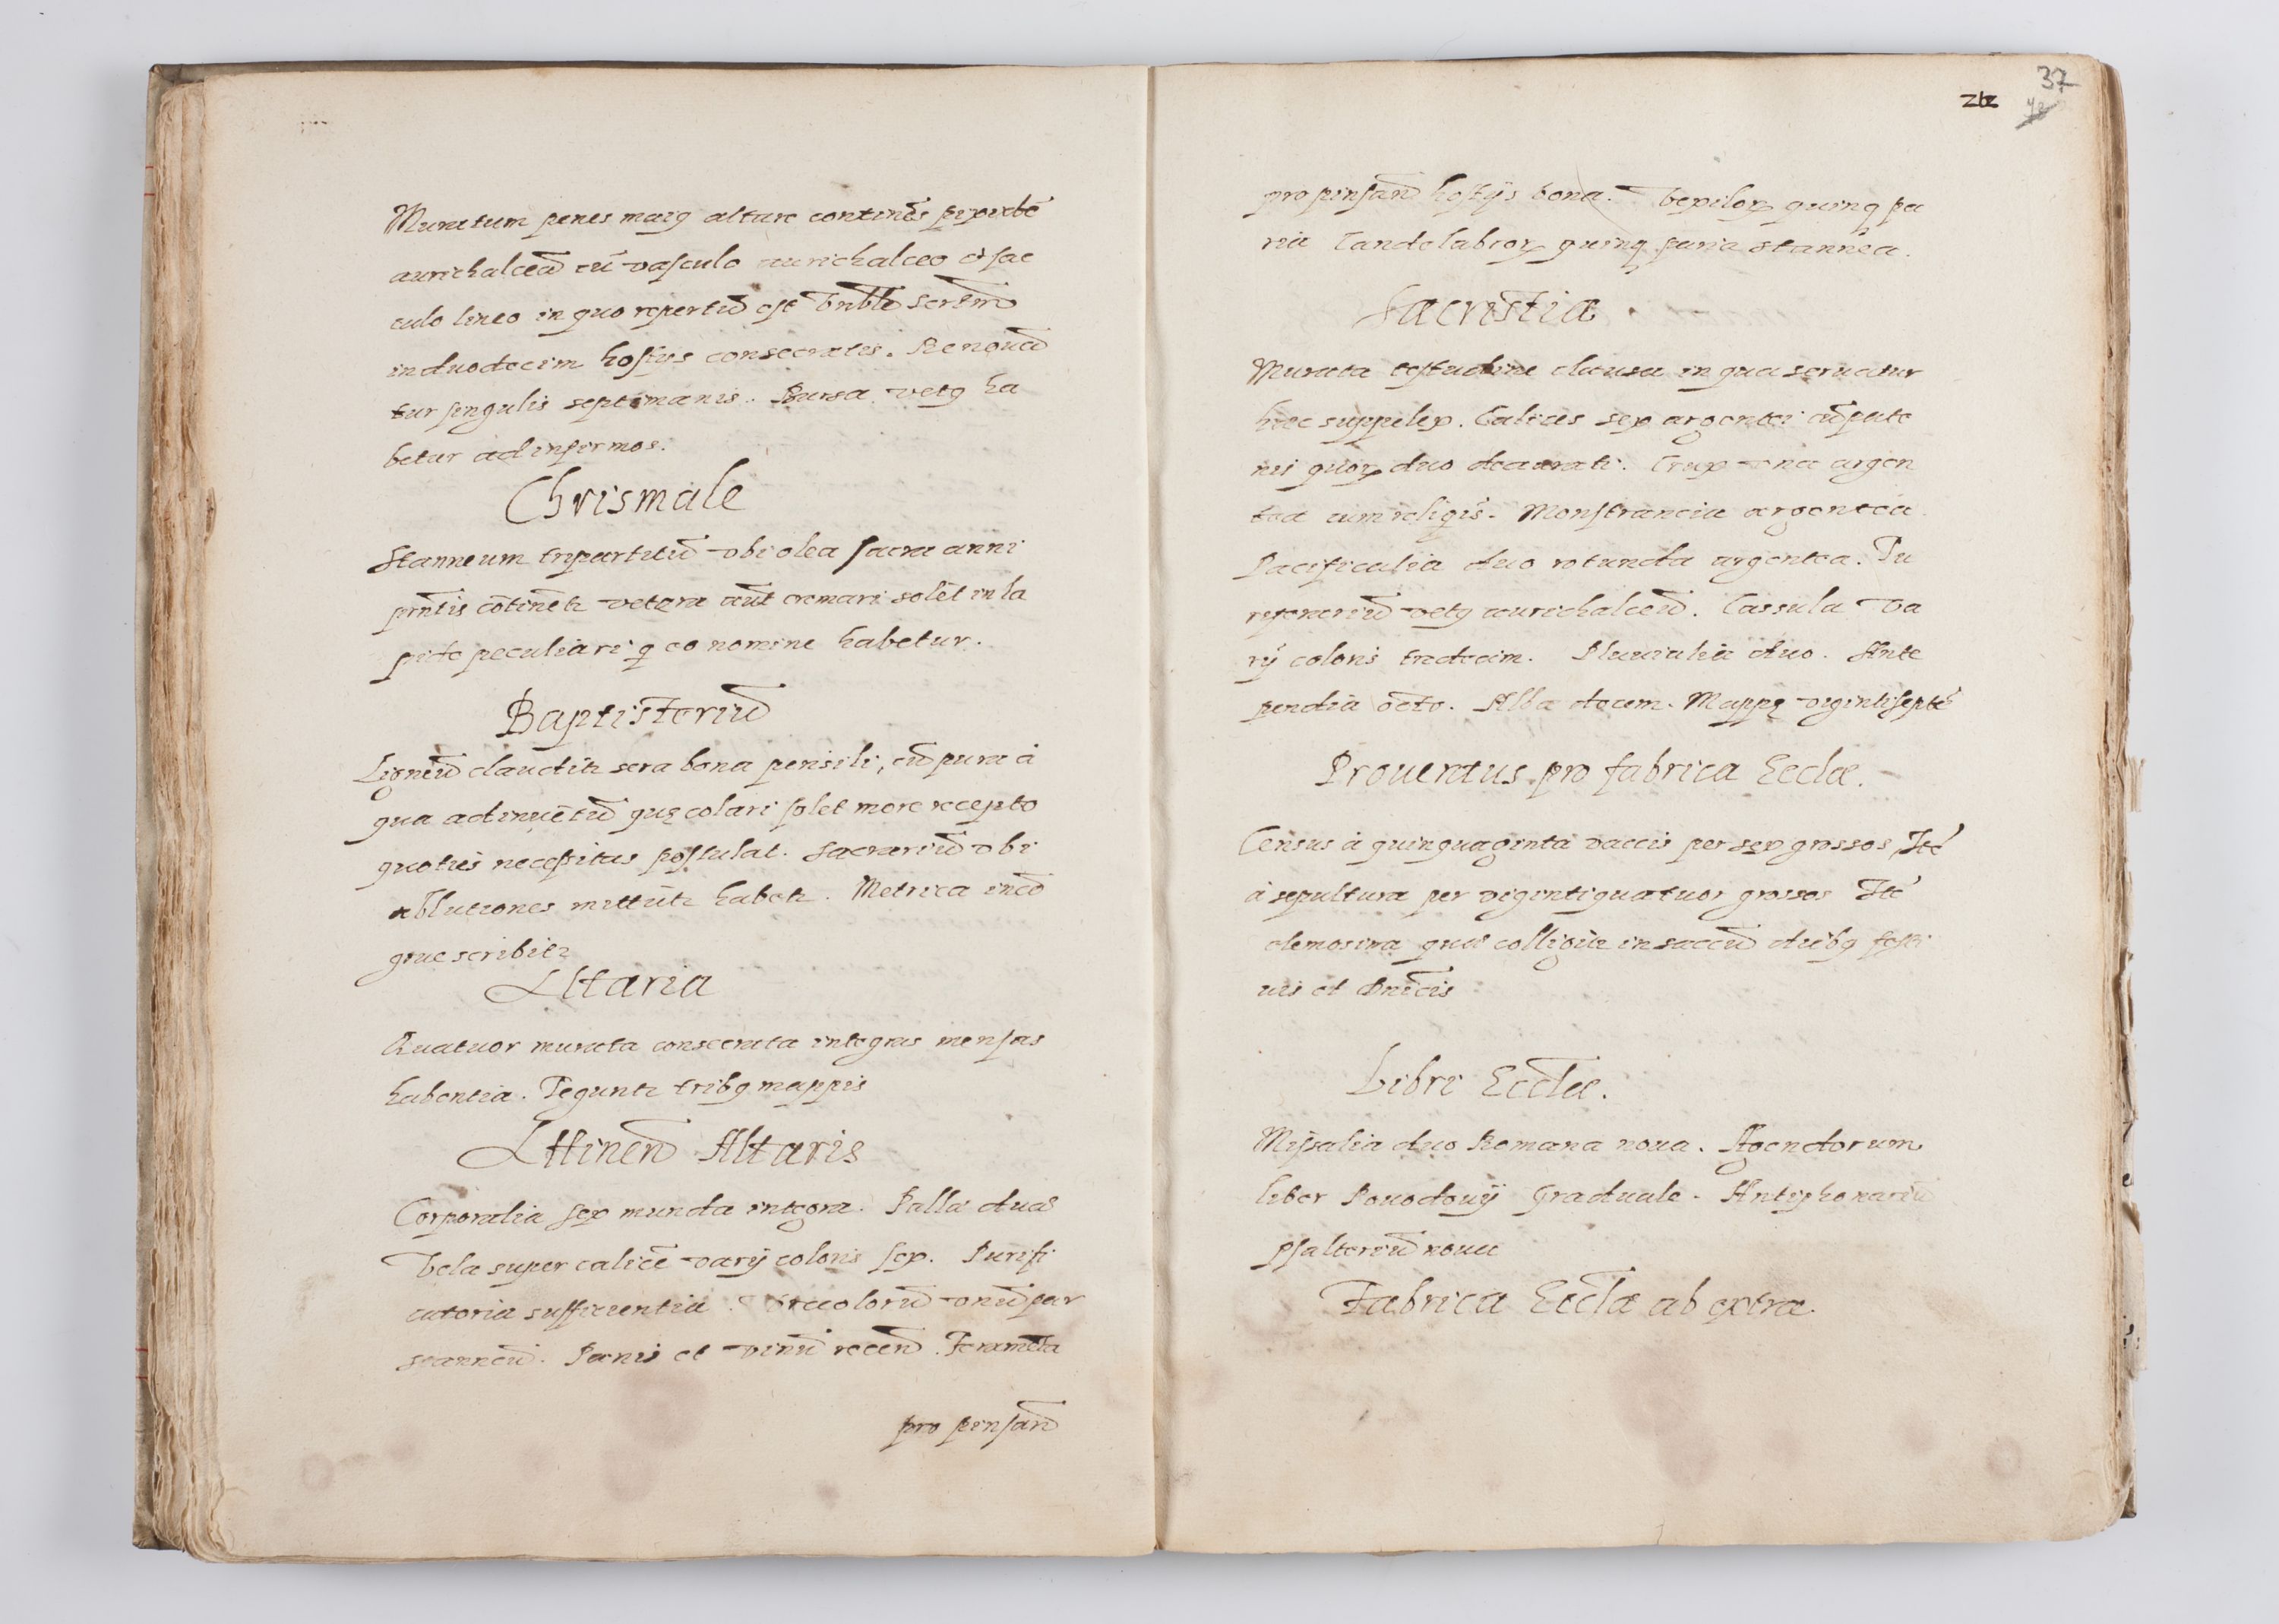 Muratum penes maig altare continēs pixidē
aurichalceā cū vasculo aurichalceo et sac
culo lineo in quo repertū est Vnble Scrtm̄
in duodecim hostijs consecratis. Renouat̄
tur singulis septimanis. Bursa vetg ha
betur ad infirmos.
Chrismale
Stanneum tripartitū vbi olea sacra anni
prn̄tis cōtinēt vetera aūt cremari solēt in la
pide peculiari q̨ eo nomine habetur.
Baptisteriū
Ligneū claudit sera bona pensili, cū pura a
qua ad inuētū quę colari solet more recepto
quoties necessitas postulat. Sacrariū vbi
ablutiones mittūt habet. Metrica in eo
que scribit
Altaria
Quatuor murata consecrata integras mensas
habentia. Tegunt tribg mappis
Attinen̄ Altaris
Corporalia sex munda integra. Palla duae
Vela super calicē varij coloris sex. Purifi
catoria sufficientia. Vrceolorū vnū par
stanneū. Panis et vinū recen̄. Feramēta
pro pinsan̄
37
pro pinsan̄ hostijs bona. Vexilor quinq pa
ria Candelabror quinq paria stannea.
Sacristia.
Murata testudine clausa in qua seruatur
haec suppelex. Calices sex argentei cū pate
nis quor duo deaurati. Crux vna argen
tea cum reliqīs. Monstrancia argentea.
Pacificalia duo rotunda argentea. Tu
ryonariū vetg aurichalceū. Cassula va
rij coloris tredecim. Pluuialia duo. Ante
pendia octo. Alba decem. Mappę viginti septē
Prouentus pro fabrica Eccłae.
Census a quinquaginta vaccis per sex grossos Itē
a sepultura per viginti quatuor grossos Itē
elemosina quae colligit in saccū diebg festi
uis et Dn̄icis
Libri Eccłae.
Missalia duo Romana noua. Agendorum
liber Pouodouij Graduale. Antiphonariū
psalteriū noua
Fabrica Eccłae ab extra.